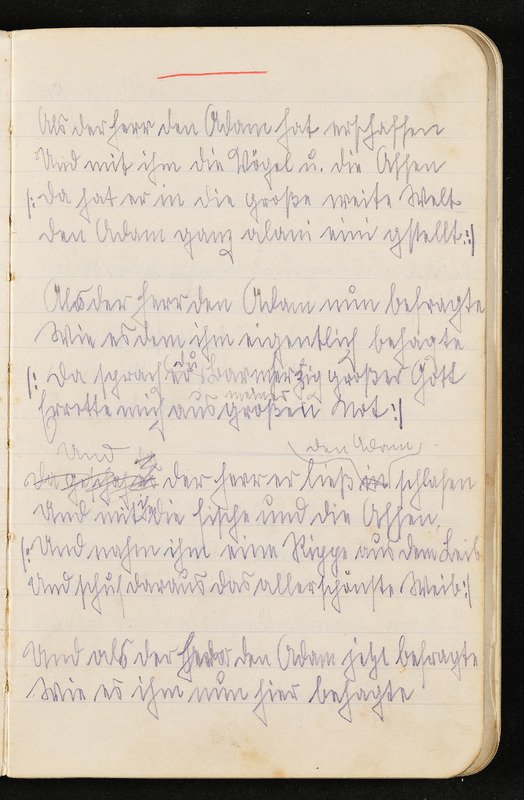 Als der Herr den Adam hat erschaffen
Und mit ihm die Vögel u. die Affen
|: Da hat er in die große weite Welt
den Adam ganz alani eini gstellt. :|
Als der Herr den Adam nun befragte
Wie es dem ihm eigentlich behagte
|: Da sprach er du barmherzig großer Gott
Errette mich aus meiner großen Not :|
Und den Adam
der Herr er ließ in schlafen
Und mit ihm die Fische und die Affen,
|: Und nahm ihm eine Rippe aus dem Leib
Und schuf daraus das allerschönste Weib :|
Und als der Herr den Adam jetzt befragte
Wie es ihm nun hier behagte